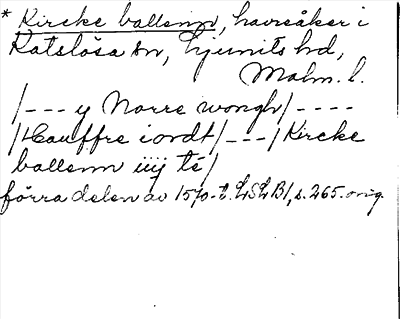 * Kircke ballenn, havreåker i
Katslösa sn, Ljunits hd,
Malm. l.
/--- y Norre wongh/----
/Hauffre iordt/---/Kircke
ballenn iiij te/
förra delen av 1570-t. LSLB1, s. 265. orig.